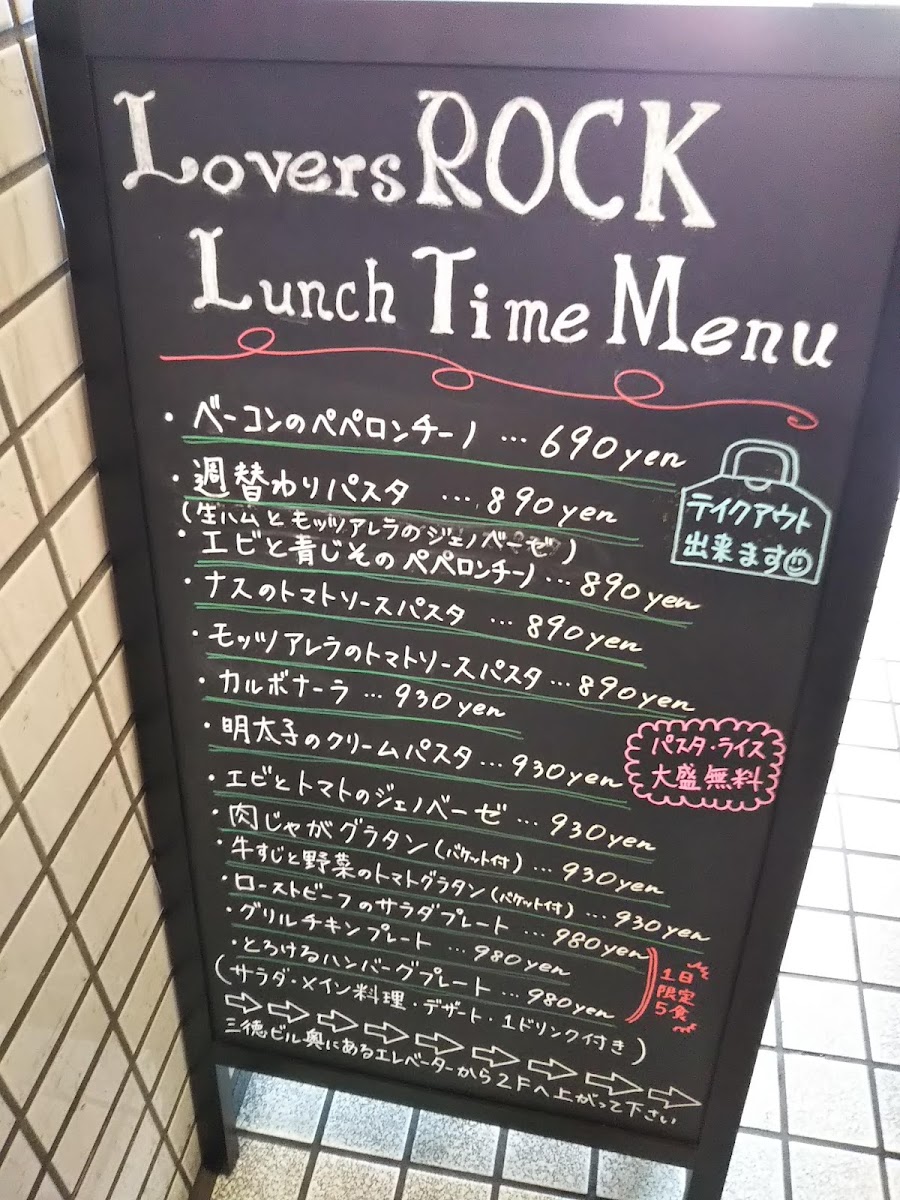 Lovers ROCK
Lunch Time Menu
・ベーコンのペペロンチーノ … 690yen
・週替わりパスタ … 890yen
(生ハムとモッツアレラのジェノベーゼ)
・エビと青じそのペペロンチーノ … 890yen
・ナスのトマトソースパスタ … 890yen
・モッツアレラのトマトソースパスタ … 890yen
・カルボナーラ … 930yen
・明太子のクリームパスタ … 930yen
・エビとトマトのジェノベーゼ … 930yen
・肉じゃがグラタン(バケット付) … 930yen
・牛すじと野菜のトマトグラタン(バケット付) … 930yen
・ローストビーフのサラダプレート … 980yen
・グリルチキンプレート … 980yen
・とろけるハンバーグプレート … 980yen
(サラダ・メイン料理・デザート・1ドリンク付き)
三徳ビル奥にあるエレベーターから2Fへ上がって下さい
テイクアウト
出来ます
パスタ・ライス
大盛無料
1日
限定
5食